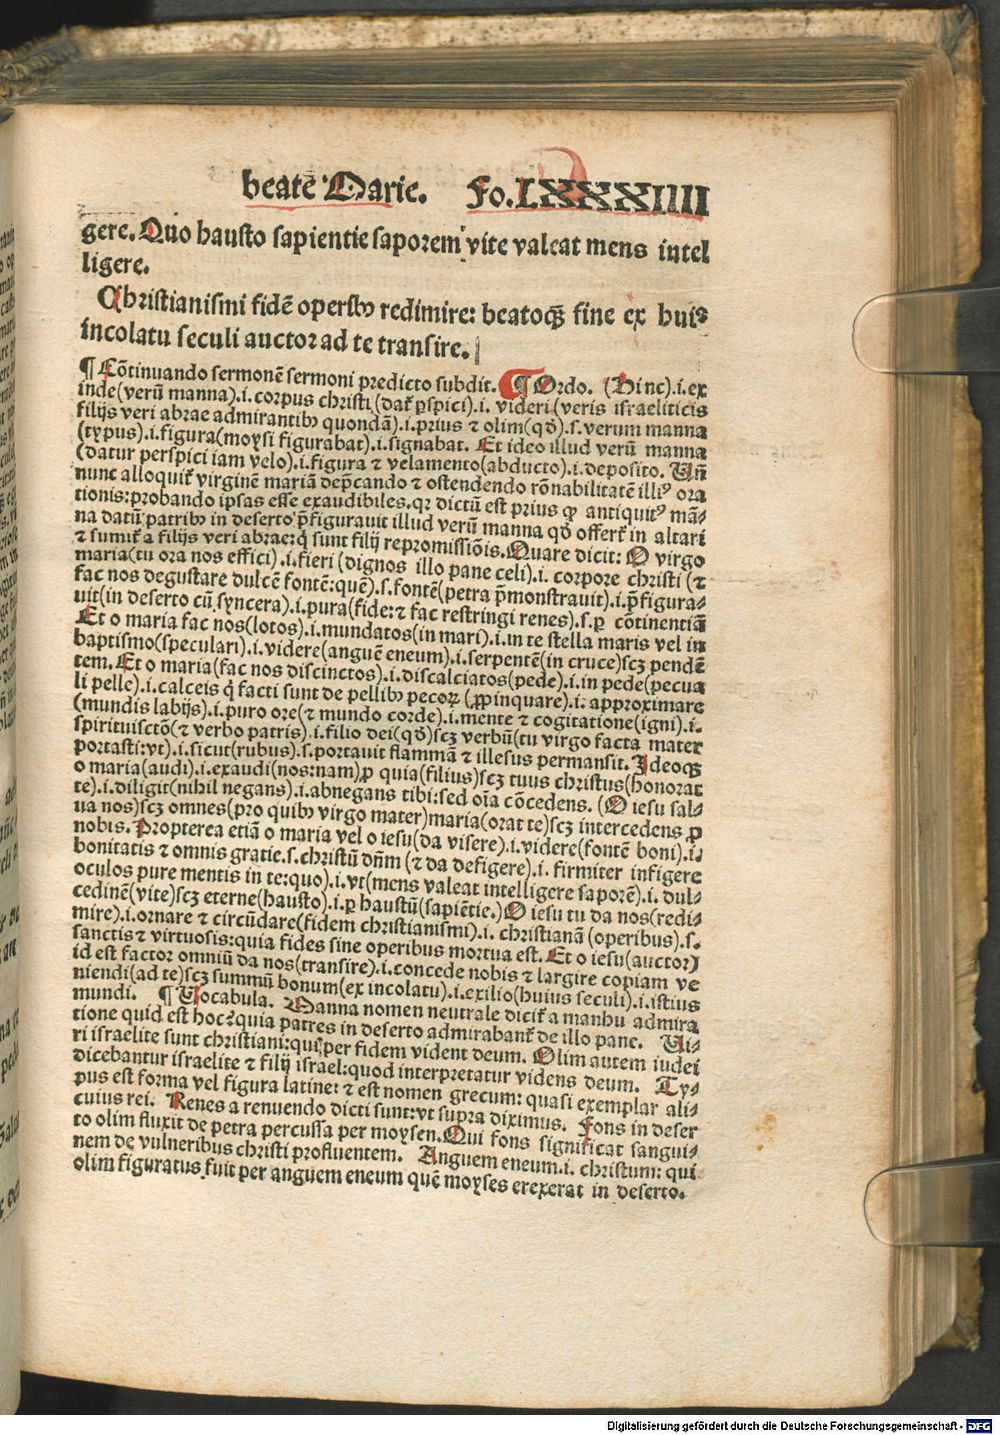 beatē Marie. Fo. LXXXIIII
gere. Quo hausto sapientie saporem vite valeat mens intel
ligere.
Christianismi fidē operibꝫ redimire: beatoqꝫ fine ex huiꝰ
incolatu seculi auctor ad te transire.
¶ Cōtinuando sermonē sermoni predicto subdit. ¶ Ordo. (Hinc).i.ex
inde(verū manna).i. corpus christi (dat̄ ꝑspici).i. videri (veris israeliticis
filijs veri abrae admirantibꝫ quondā).i.prius ⁊ olim(qd̄).s.verum manna
(typus).i.figura(moysi figurabat).i.signabat. Et ideo illud verū manna
(datur perspici iam velo).i.figura ⁊ velamento(abducto).i.deposito. Un̄
nunc alloquit̄ virginē mariā dep̄cando ⁊ ostendendo rōnabilitatē illiꝰ ora
tionis:probando ipsas esse exaudibiles.qꝛ dictū est prius ꝙ antiquitꝰ mā⸗
na datū patribꝫ in deserto p̄figurauit illud verū manna qd̄ offert̄ in altari
⁊ sumit̄ a filijs veri abrae:q̄ sunt filij repromissiōis. Quare dicit: O virgo
maria(tu ora nos effici) .i.fieri (dignos illo pane celi).i. corpore christi (⁊
fac nos degustare dulcē fontē:quē).s.fontē(petra p̄monstrauit).i.p̄figura⸗
uit(in deserto cū syncera).i.pura(fide:⁊ fac restringi renes).s.ꝑ cōtinentiā
Et o maria fac nos(lotos).i.mundatos(in mari).i.in te stella maris vel in
baptismo(speculari).i.videre(anguē eneum).i.serpentē(in cruce)scꝫ pendē
tem. Et o maria(fac nos discinctos).i.discalciatos(pede).i.in pede(pecua
li pelle).i.calceis q̄ facti sunt de pellibꝫ pecorꝝ (ꝓpinquare).i. approximare
(mundis labijs).i.puro ore(⁊ mundo corde).i.mente ⁊ cogitatione(igni).i.
spirituisctō(⁊ verbo patris).i.filio dei(qd̄)scꝫ verbū(tu virgo facta mater
portasti:vt).i.sicut(rubus).s.portauit flammā ⁊ illesus permansit. Ideoqꝫ
o maria(audi).i.exaudi(nos:nam)ꝓ quia(filius)scꝫ tuus christus(honorat
te).i.diligit(nihil negans).i.abnegans tibi:sed oīa cōcedens. (O iesu sal⸗
ua nos)scꝫ omnes(pro quibꝫ virgo mater)maria(orat te)scꝫ intercedens ꝓ
nobis. Propterea etiā o maria vel o iesu(da visere).i.videre(fontē boni).i.
bonitatis ⁊ omnis gratie.s.christū dn̄m (⁊ da defigere).i. firmiter infigere
oculos pure mentis in te:quo).i.vt(mens valeat intelligere saporē).i. dul⸗
cedinē(vite)scꝫ eterne(hausto).i.ꝑ haustū(sapiētie.) O iesu tu da nos(redi⸗
mire).i.ornare ⁊ circūdare(fidem christianismi).i. christianā (operibus).s.
sanctis ⁊ virtuosis:quia fides sine operibus mortua est. Et o iesu(auctor)
id est factor omniū da nos(transire).i.concede nobis ⁊ largire copiam ve
niendi(ad te)scꝫ summū bonum(ex incolatu).i.exilio(huius seculi).i.istius
mundi. ¶ Vocabula. Manna nomen neutrale dicit̄ a manhu admira
tione quid est hoc?quia patres in deserto admirabant̄ de illo pane. Ui⸗
ri israelite sunt christiani:qui per fidem vident deum. Olim autem iudei
dicebantur israelite ⁊ filij israel:quod interpretatur videns deum. Ty⸗
pus est forma vel figura latine: ⁊ est nomen grecum: quasi exemplar ali⸗
cuius rei. Renes a renuendo dicti sunt:vt supra diximus. Fons in deser
to olim fluxit de petra percussa per moysen. Qui fons significat sangui⸗
nem de vulneribus christi profluentem. Anguem eneum.i. christum: qui
olim figuratus fuit per anguem eneum quē moyses erexerat in deserto.
Digitalisierung gefördert durch die Deutsche Forschungsgemeinschaft - DFG